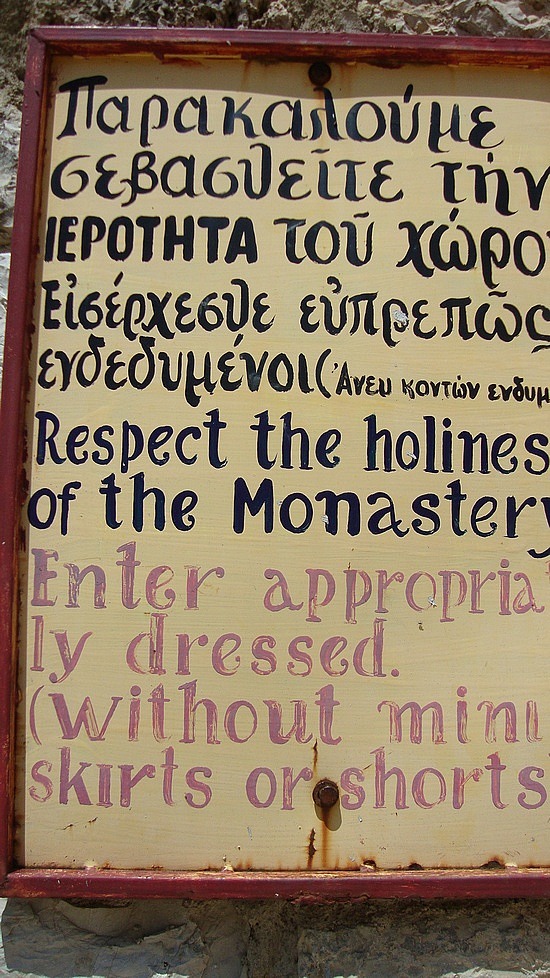 Παρακαλούμε
σεβασθεῖτε τὴν
ΙΕΡΟΤΗΤΑ τοῦ χώρο
Εἰσέρχεσθε εὐπρεπῶς
ενδεδυμένοι (Ἄνευ κοντών ενδυμ
Respect the holines
of the Monastery
Enter appropria
ly dressed.
(without mini
skirts or shorts